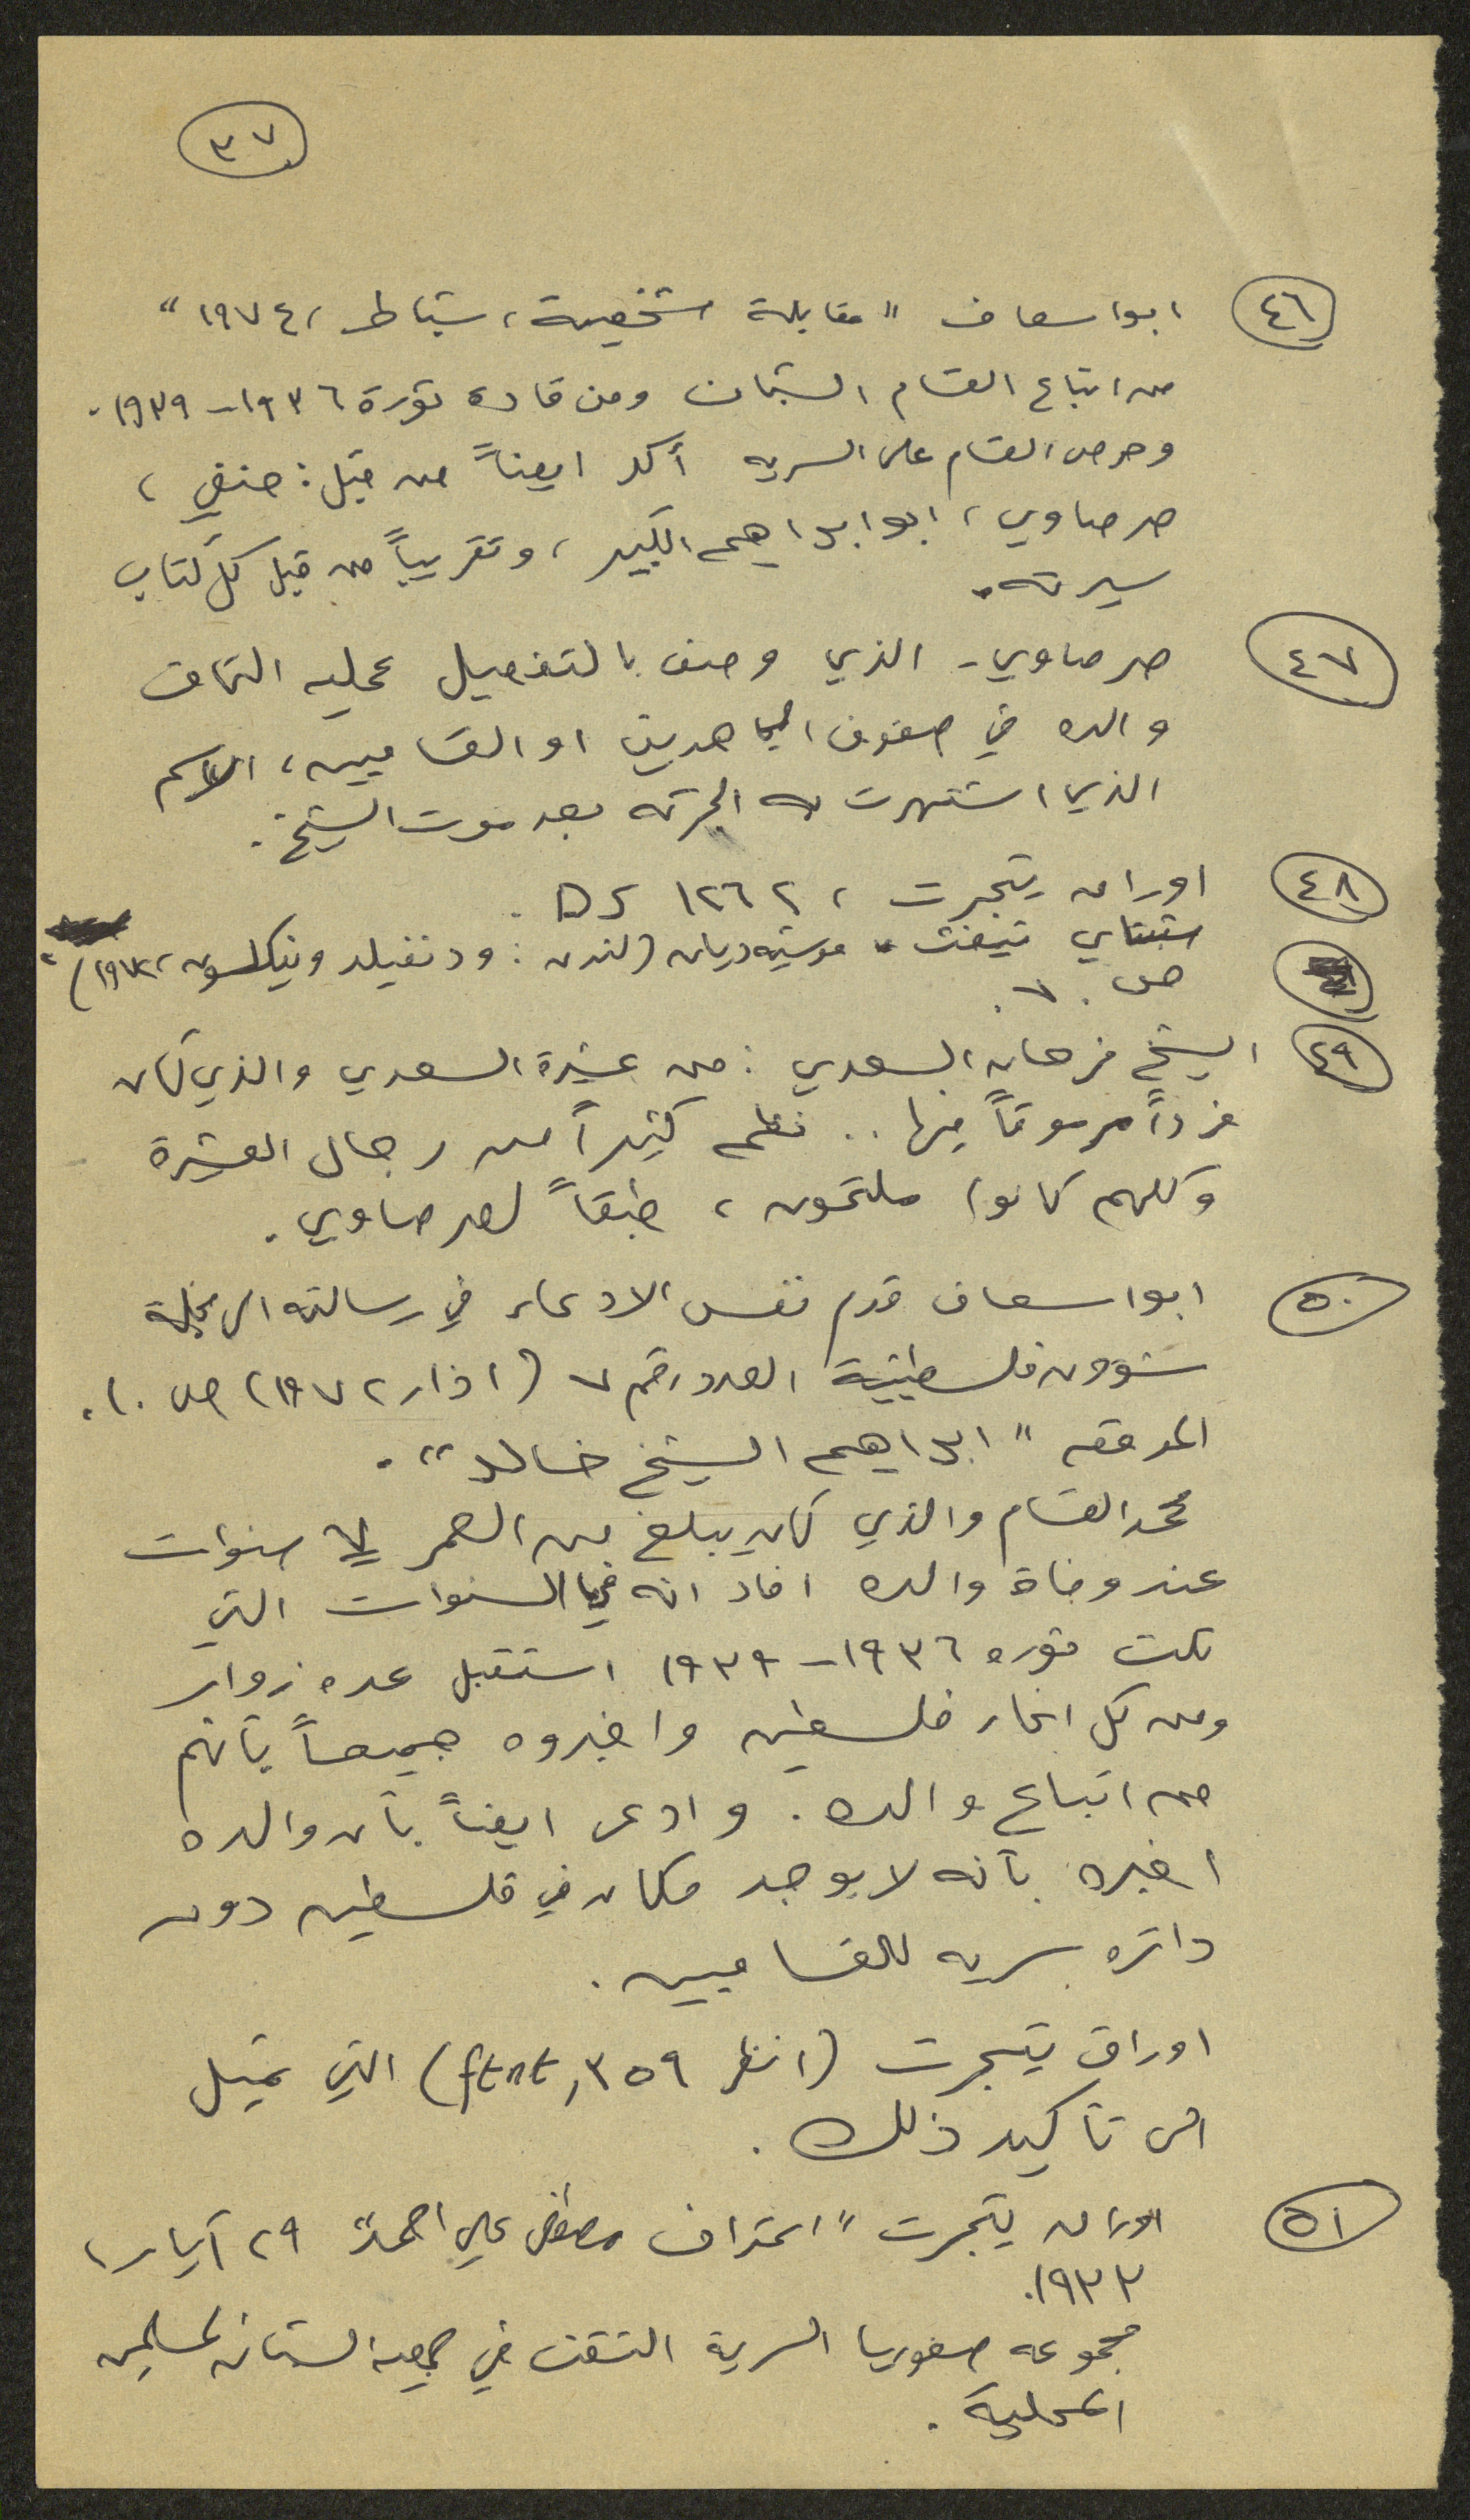 ٣٧
٤٦ ابو اسعاف "مقابلة شخصية، شباط، ١٩٧٤"
من اتباع القسام الشبان ومن قادة ثورة ١٩٣٦-١٩٣٩.
وحرص القسام على السريه أكد ايضاً من قبل: حنفي،
صرصاوي، ابو ابراهيم الكبير، وتقريباً من قبل كل كتاب
سيرته.
٤٧ صرصاوي - الذي وصف بالتفصيل عمليه التحاق
والده في صفوف المجاهدين او القساميين، الاسم
الذي اشتهرت به الحركه بعد موت الشيخ.
٤٨ اوراق يتجرت، ١٢٦٢ DS.
شبتاي تيفث، موشيه ديان (لندن: ودنفيلد ونيكلسون، ١٩٧٢)،
ص ٧٠.
٤٩ الشيخ فرحان السعدي: من عشيرة السعدي والذي كان
فرداً مرموقاً فيها.. نظم كثيراً من رجال العشيرة
وكلهم كانوا ملتحون، طبقاً لصرصاوي.
٥٠ ابو اسعاف قدم نفس الادعاء في رسالته الى مجلة
شؤون فلسطينية العدد رقم ٧ (اذار ١٩٧٢) ص ١٠.
الموقعه "ابراهيم الشيخ خالد".
محمد القسام والذي كان يبلغ من العمر ٧ سنوات
عند وفاة والده افاد انه في السنوات التي
تلت ثوره ١٩٣٦-١٩٣٩ استقبل عده زوار
ومن كل انحاء فلسطين واخبروه جميعاً بأنهم
من اتباع والده. وادعى ايضاً بأن والده
اخبره بأنه لا يوجد مكان في فلسطين دون
دائره سريه للقساميين.
اوراق يتيجرت (انظر ftnt, ٣٥٩) التي تميل
الى تأكيد ذلك.
٥١ اوراق يتجرت "اعتراف مصطفى علي احمد" ٢٩ آيار،
١٩٣٣.
مجموعه صفوريا السرية التقت في جمعيه الشبان المسلمين
المحلية.